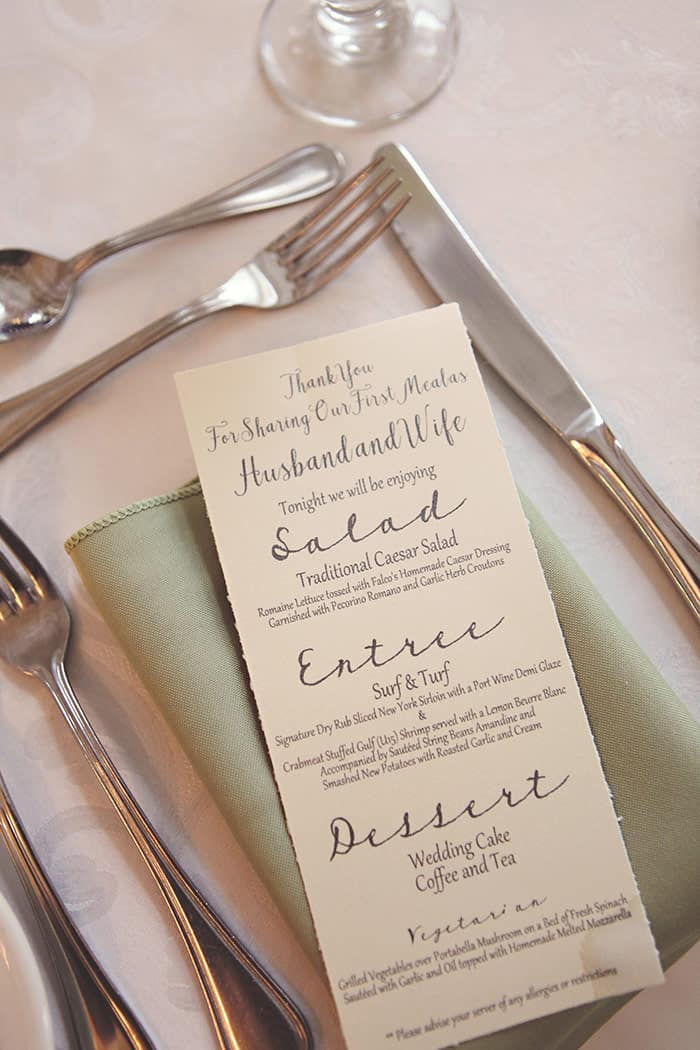 Thank You
For Sharing Our First Mealas
Husband and Wife
Tonight we will be enjoying
Salad
Traditional Caesar Salad
Romaine Lettuce tossed with Falco's Homemade Caesar Dressing
Garnished with Pecorino Romano and Garlic Herb Croutons
Entree
Surf & Turf
Signature Dry Rub Sliced New York Sirloin with a Port Wine Demi Glaze
&
Crabmeat Stuffed Gulf (U15) Shrimp served with a Lemon Beurre Blanc
Accompanied by Sautéed String Beans Amandine and
Smashed New Potatoes with Roasted Garlic and Cream
Dessert
Wedding Cake
Coffee and Tea
Vegetarian
Grilled Vegetables over Portabella Mushroom on a Bed of Fresh Spinach
Sautéed with Garlic and Oil topped with Homemade Melted Mozzarella
** Please advise your server of any allergies or restrictions